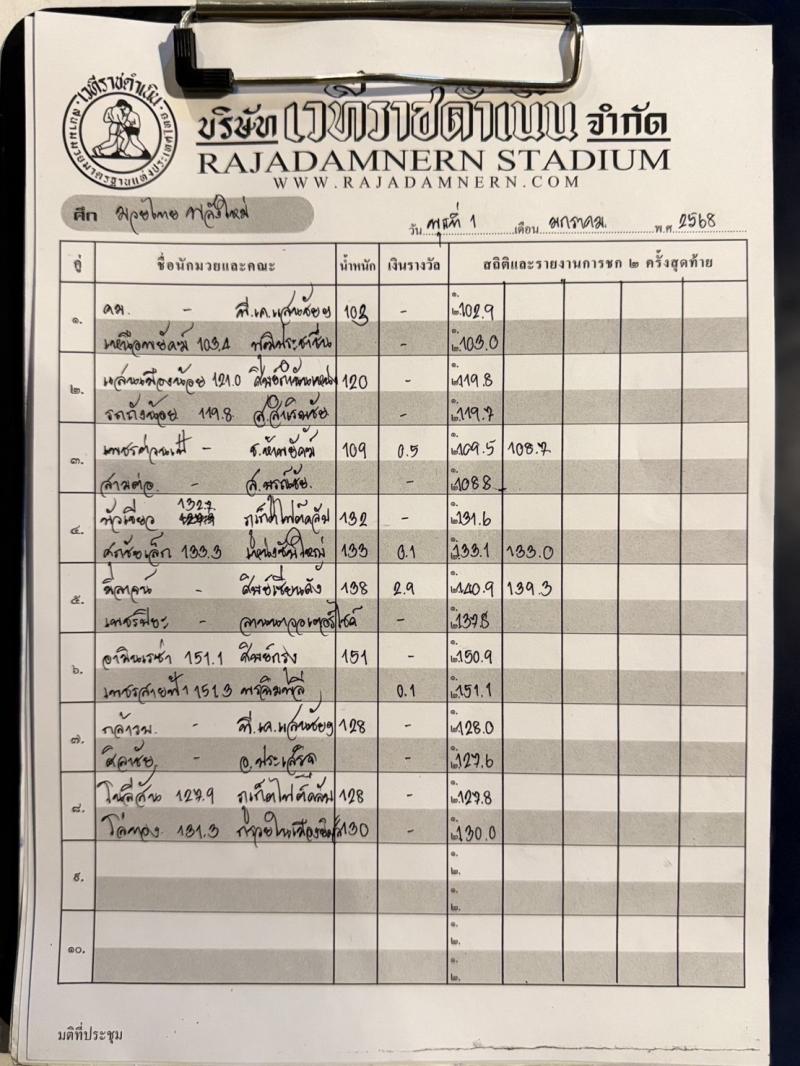 เวทีราชดำเนิน
สนามมวยมาตรฐานแห่งประเทศไทย
บริษัท เวทีราชดำเนิน จำกัด
RAJADAMNERN STADIUM
WWW.RAJADAMNERN.COM
ศึก มวยไทย พลังใหม่
วัน พุธที่ 1 เดือน มกราคม. พ.ศ. 2568
คู่ ชื่อนักมวยและคณะ น้ำหนัก เงินรางวัล สถิติและรายงานการชก ๒ ครั้งสุดท้าย
๑. คม. - พี.เค.แสนชัยฯ 103 - ๑. ๒. 102.9
เหนือพยัคฆ์ 103.4 วุฒิประชาชื่น - 103.0
๒. แสนเมืองน้อย 121.0 120 - ๑. ๒. 119.8
รถถังน้อย 119.8 - 119.7
๓. - ช.ห้าพยัคฆ์ 109 0.5 ๑. ๒. 109.5 108.7
สามต่อ. - - 108.8
๔. บัวเขียว 132.7 ภูเก็ตไฟต์คลับ 132 - ๑. ๒. 131.6
ศรชัยเล็ก 133.3 133 0.1 133.1 133.0
๕. - ศิษย์เซียนดัง 138 2.9 ๑. ๒. 140.9 139.3
เพชรปิยะ - ลานนาวอเตอร์ไซด์ - 137.8
๖. อามินเรซ่า 151.1 151 - ๑. ๒. 150.9
เพชรสายฟ้า 151.3 0.1 151.1
๗. กล้าวพ. - พี.เค.แสนชัยฯ 128 - ๑. ๒. 128.0
ศิลาชัย. - อ.ประเสริฐ - 127.6
๘. 127.9 ภูเก็ตไฟต์คลับ 128 - ๑. ๒. 127.8
โล่ทอง. 131.3 130 - 130.0
๙. ๑.
๒.
๑๐. ๑.
๒.
๑.
๒.
มติที่ประชุม